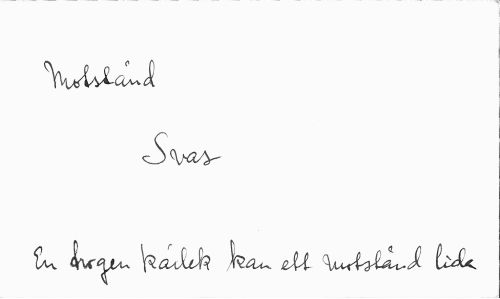 Motstånd
Svas
En trogen kärlek kan ett motstånd lida